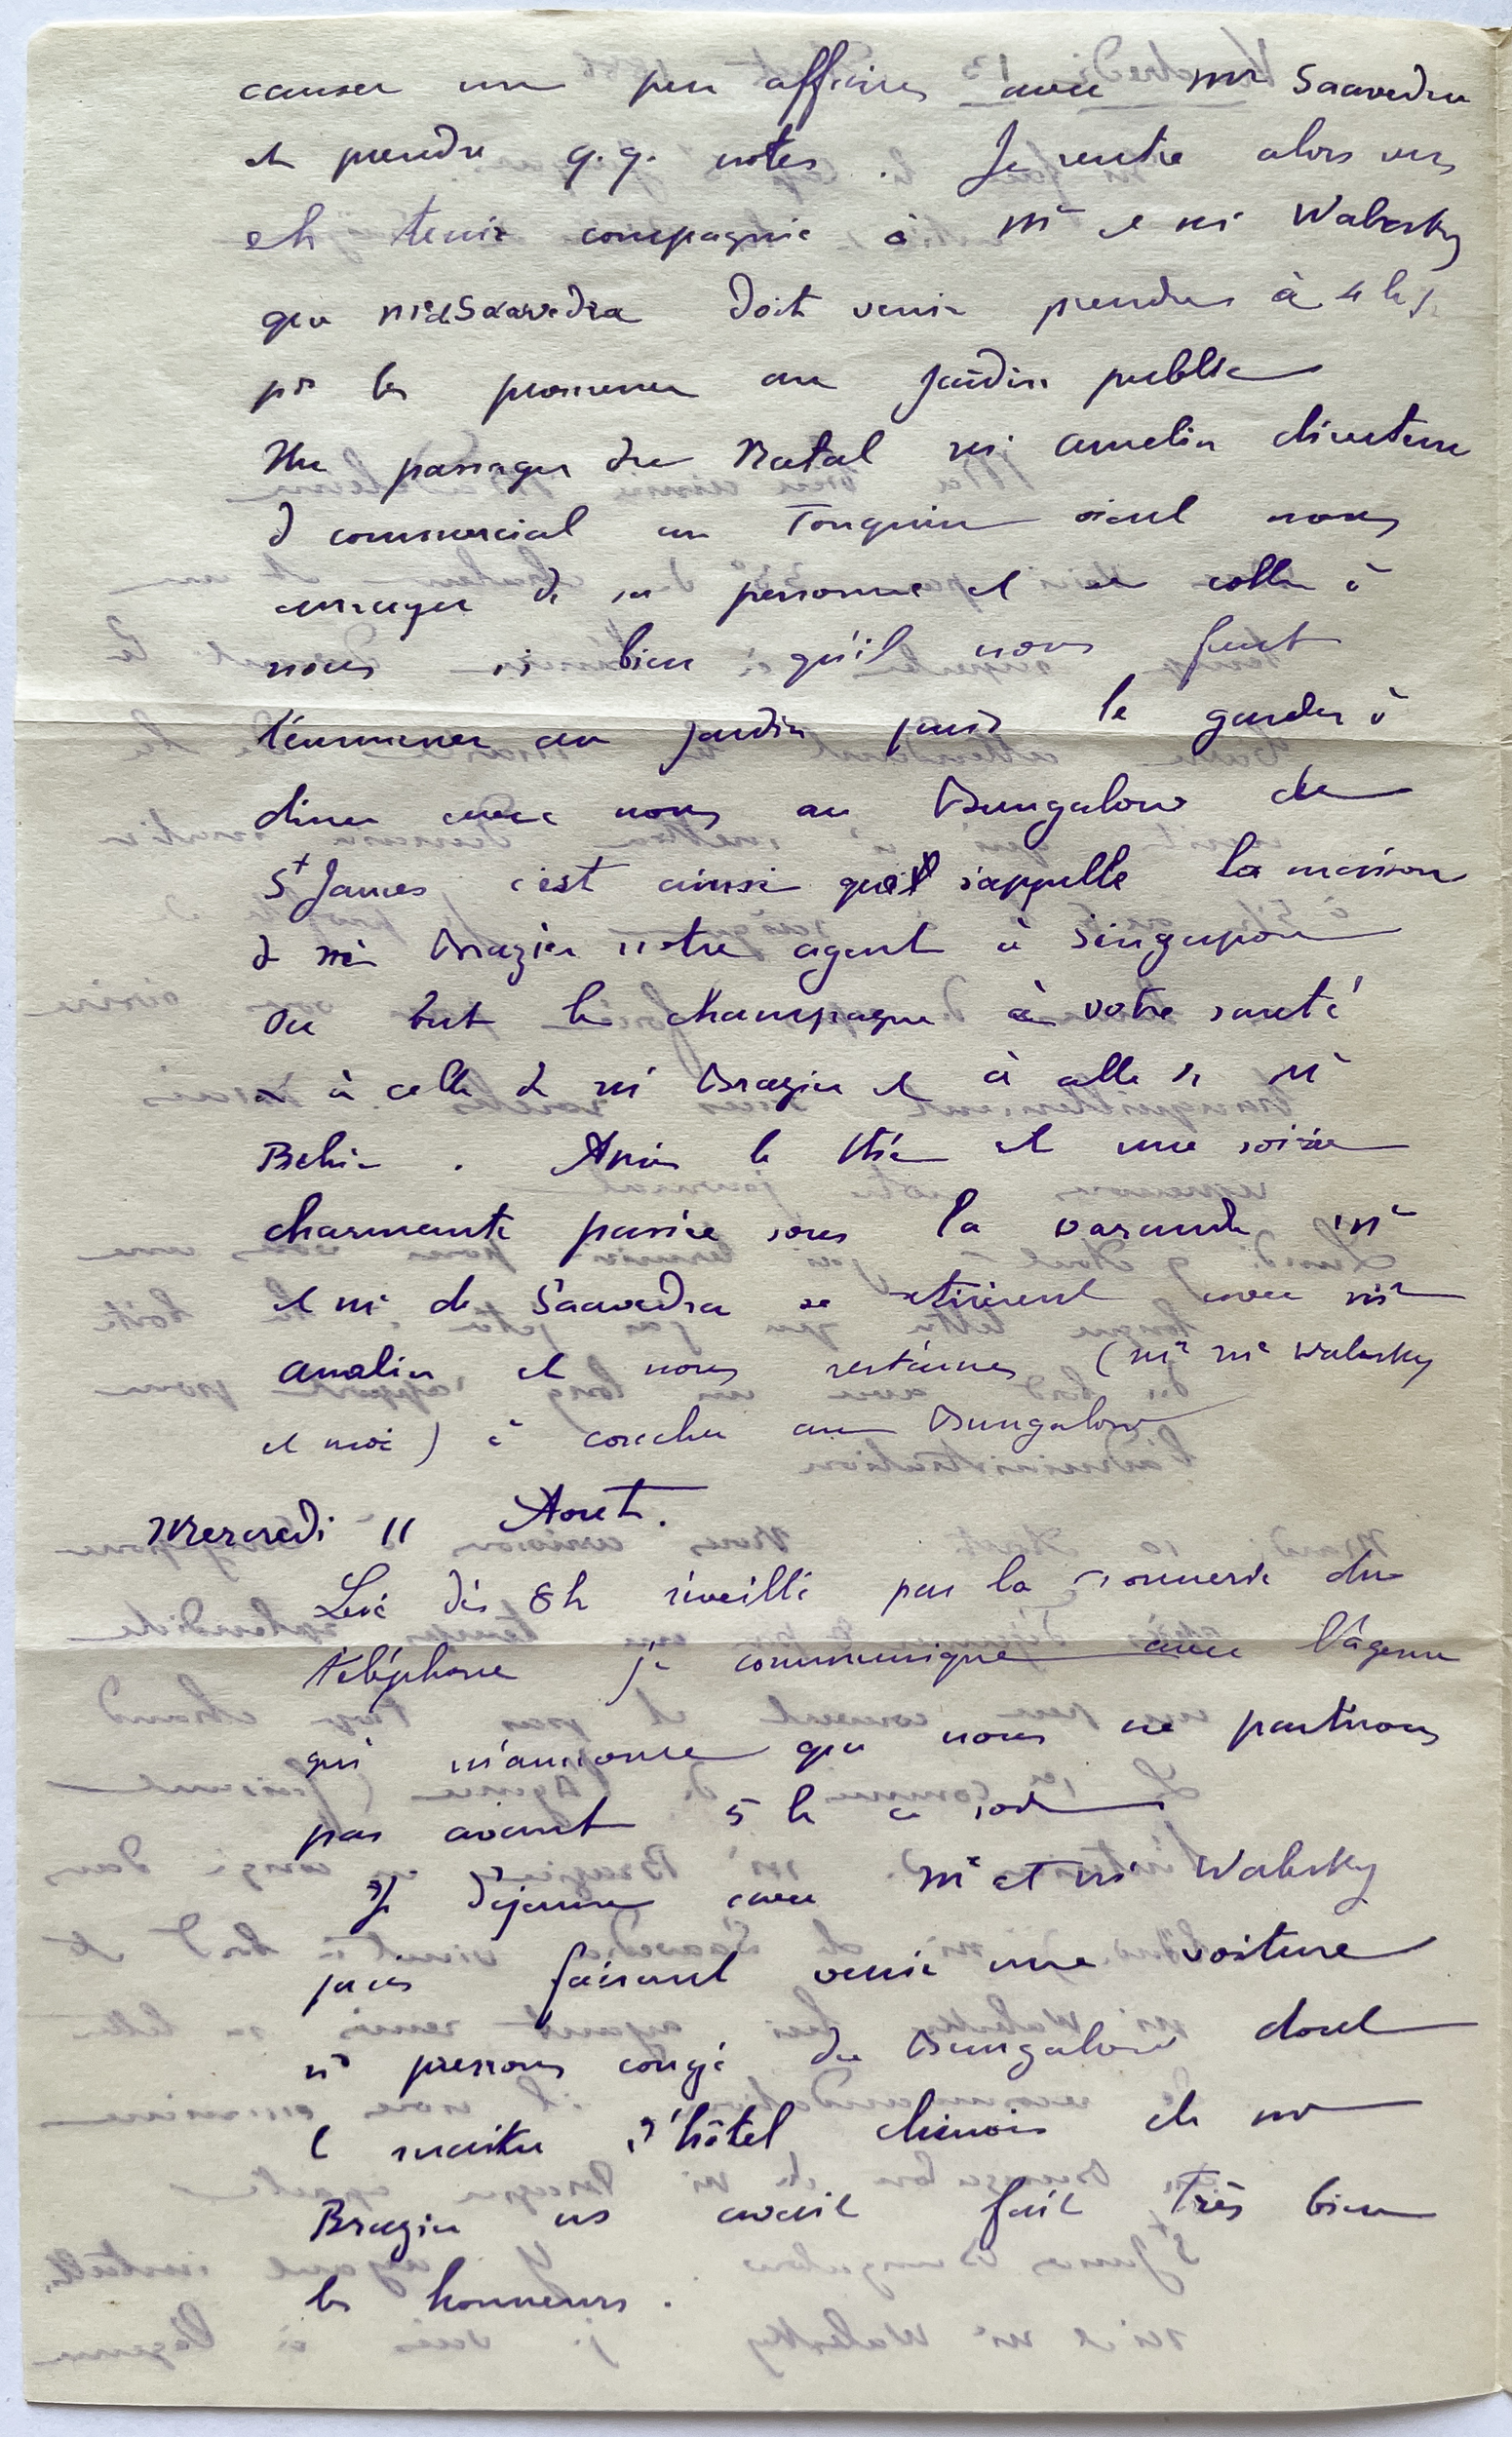 causer un peu affaires avec Mr Saavedra
et prendre q.q. notes. Je rentre alors
tenir compagnie à Mr et Me Walesky
que Me de Saavedra doit venir prendre à 4 h
pr les promener au Jardin public
Un passager du Natal Mr Amelin directeur
d commercial au Tonquin vient nous
de sa personne et se colle à
nous si bien qu'il nous faut
l'emmener au jardin puis le garder à
diner avec nous au Bungalow de
St James c'est ainsi que s'appelle la maison
d Mr Brazier notre agent à Singapour
On but le champagne à votre santé
à celle d Mr Brazier et à celle d Mr
Behic. Après le thé et une soirée
charmante passée sous la varande Me
et Mr de Saavedra se retirèrent avec Mr
Amelin et nous restâmes (Mr Me Walesky
et moi) à coucher au Bungalow
Mercredi 11 Aout.
Levé dès 8 h réveillé par la sonnerie du
téléphone je communique avec l'agence
qui m'annonce que nous ne partirons
pas avant 5 h ce soir
Je déjeune avec Mr et Me Walesky
puis faisant venir une voiture
ns prenons congé du Bungalow dont
l maitre d'hôtel chinois de Mr
Brazier ns avait fait très bien
les honneurs.